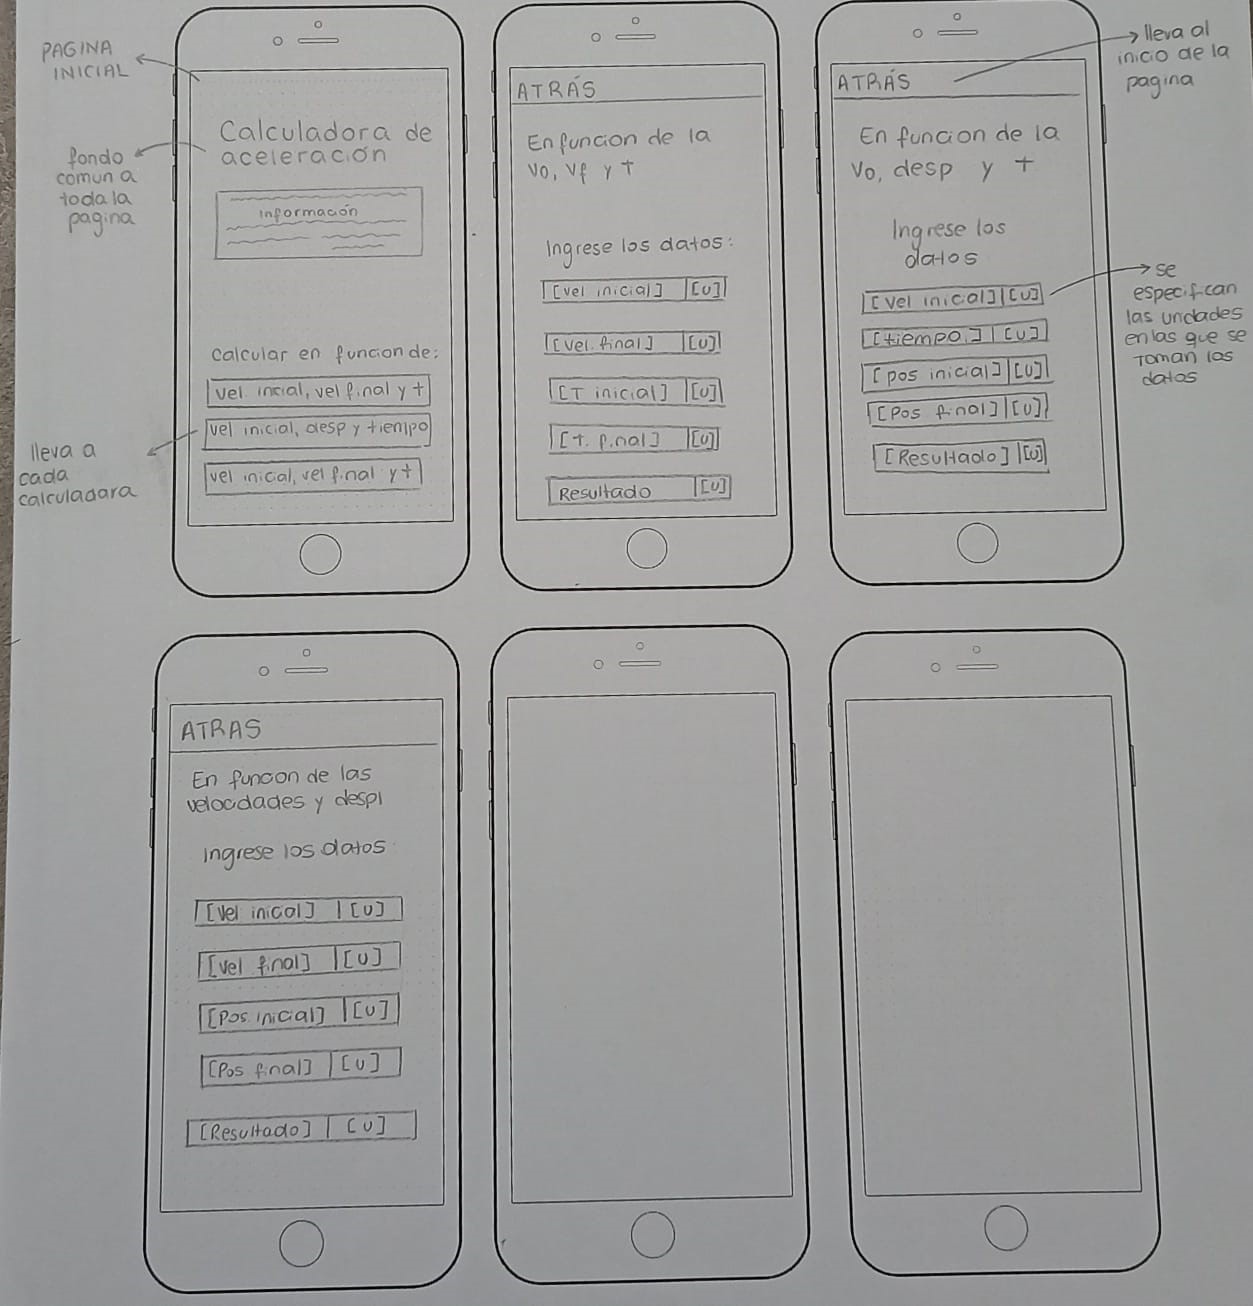 PAGINA
INICIAL
fondo
comun a
toda la
pagina
lleva a
cada
calculadara
Calculadora de
aceleración
Información
calcular en funcion de:
vel. incial, vel final y t
vel inicial, desp y tiempo
vel inical, vel final y t
ATRÁS
En funcion de la
vo, vf y t
Ingrese los datos:
[vel inicial] [U]
[vel. final] [U]
[T inicial] [U]
[t. final] [U]
Resultado [U]
ATRÁS
En funcion de la
Vo, desp y t
Ingrese los
datos
[vel inicial] [U]
[tiempo.] [U]
[pos inicial] [U]
[Pos final] [U]
[Resultado] [U]
lleva al
inicio de la
pagina
se
especifican
las undades
en las que se
toman los
datos
ATRAS
En funcon de las
velocdades y despl
Ingrese los datos
[Vel inical] [U]
[vel final] [U]
[Pos. inicial] [U]
[Pos final] [U]
[Resultado] [U]